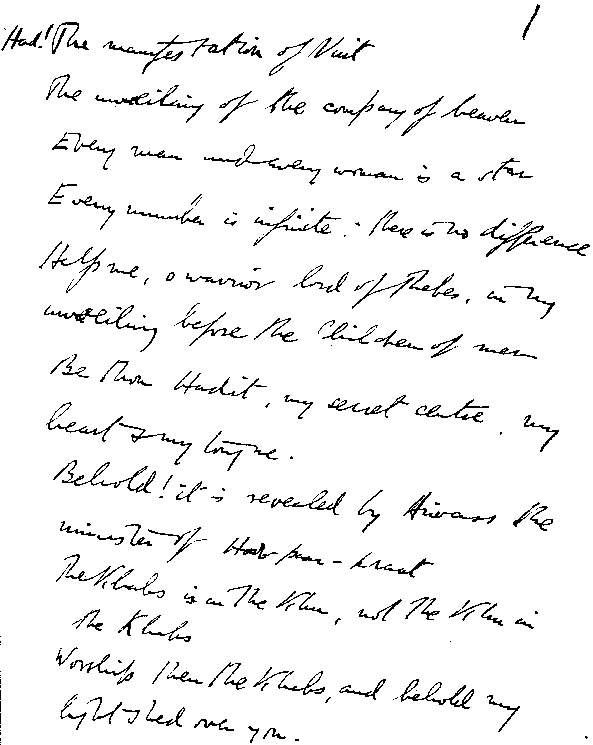 1
Had! The manifestation of Nuit
The unveiling of the company of heaven
Every man and every woman is a star
Every number is infinite : there is no difference
Help me, o warrior lord of Thebes, in my
unveiling before the Children of men
Be thou Hadit, my secret centre, my
heart & my tongue.
Behold! it is revealed by Aiwass the
minister of Hoor-paar-kraat
The Khabs is in the Khu, not the Khu in
the Khabs
Worship then the Khabs, and behold my
light shed over you.